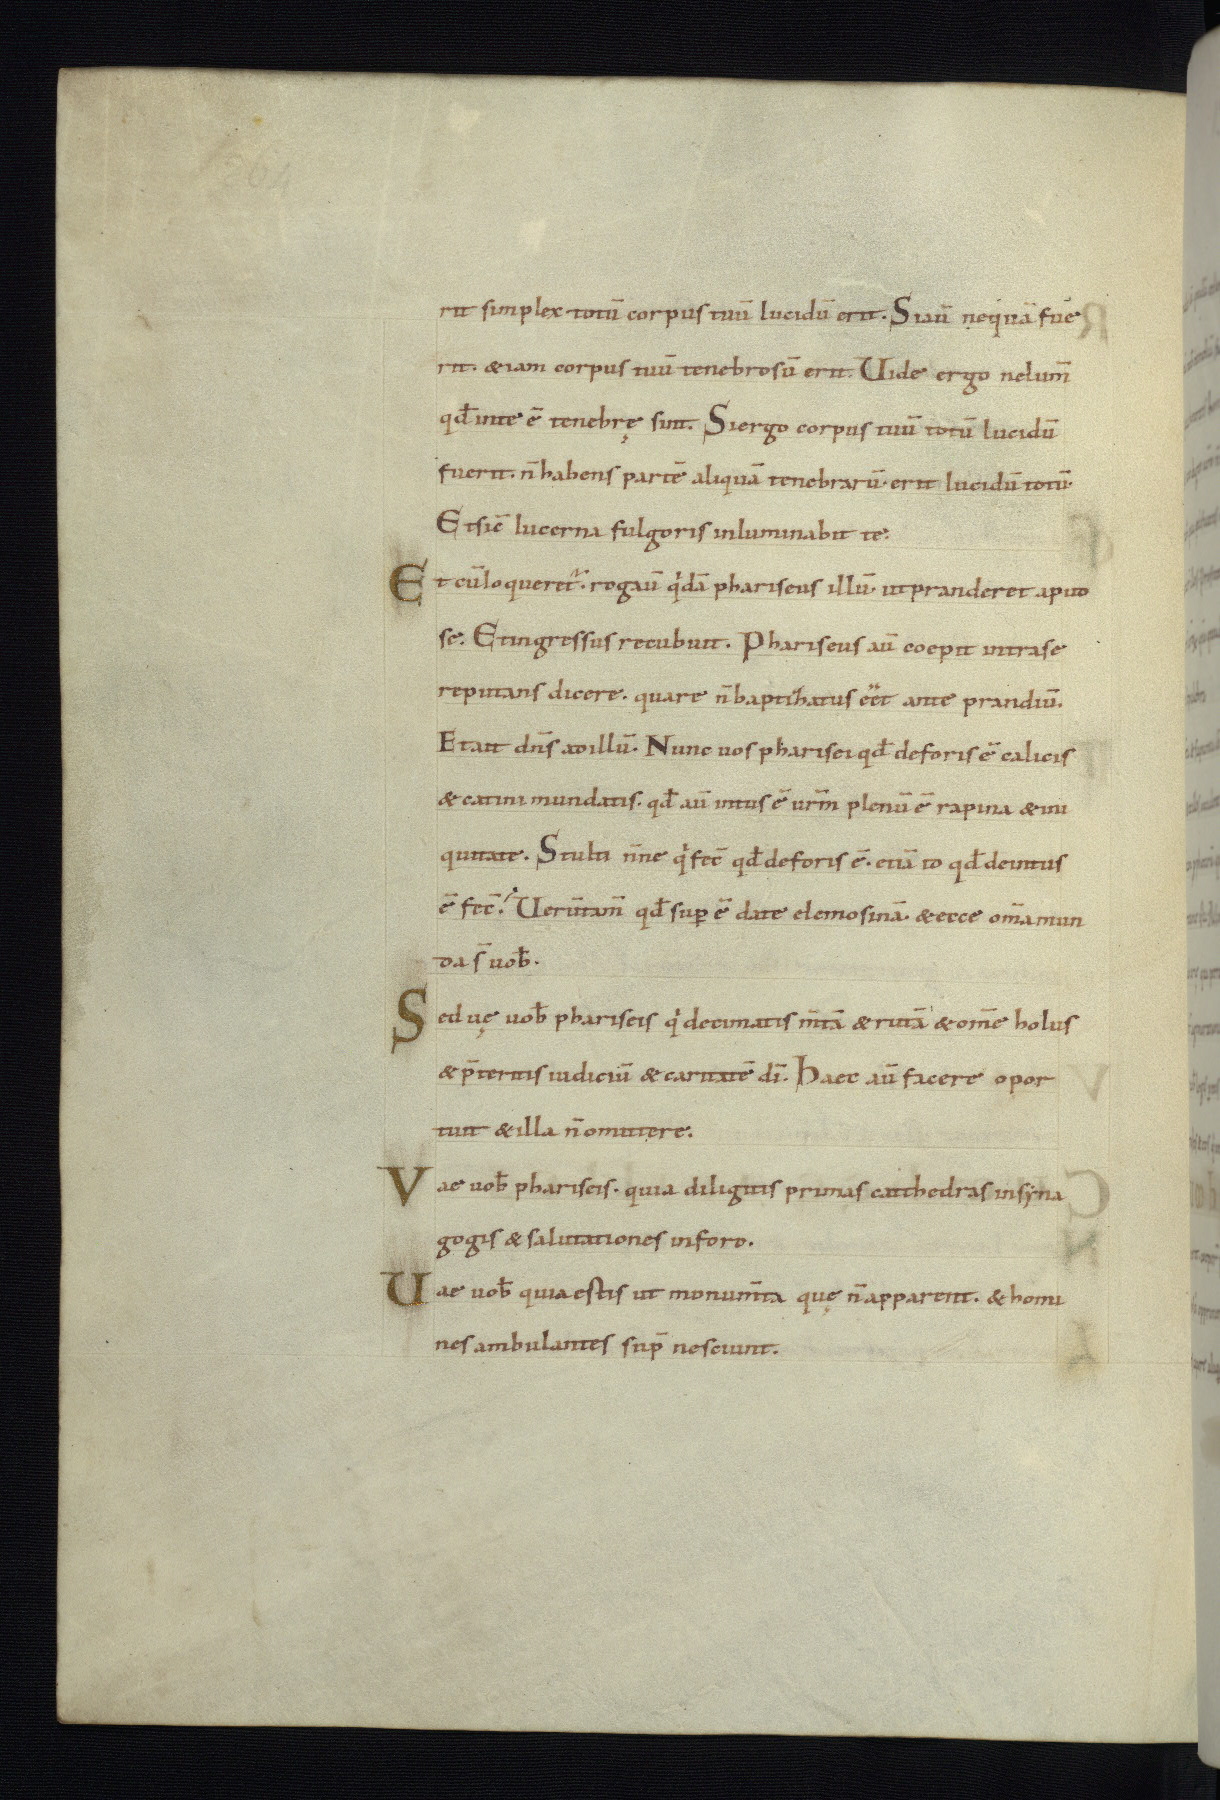 rit simplex totū corpus tuū lucidū erit. Siaū nequā fue
rit. &iam corpus tuū tenebrosū erit. Uide ergo nelum̄
qđinte ē tenebrę sint. Siergo corpus tuū totū lucidū
fuerit. n̄habens partē aliquā tenebrarū. erit lucidū totū.
Etsic̄ lucerna fulgoris inluminabit te.
Et cūloqueret᷑. rogaū qͥdā phariseus illū. utpranderet apud
se. Etingressus recubuit. Phariseus aū coepit intrase
reputans dicere. quare n̄baptizatus eēt ante prandiū.
Etait dn̄s adillū. Nunc uos pharisei qđ deforis ē calicis
&catini mundatis. qđ aū intus ē urm̄ plenū ē rapina &ini
quitate. Stulti n̄ne qͥfec̄ qđdeforis ē. etiā id qđdeintus
ē fec̄. Uerūtam̄ qđ suꝑ ē date elemosinā. &ecce om̄amun
da s̄ uob̄.
Sed uę uob̄ phariseis qͥdecimatis m̄tā &rutā &om̄e holus
&p̄teritis iudiciū &caritatē dī. Haec aū facere opor
tuit &illa n̄omittere.
Vae uob̄ phariseis. quia diligitis primas cathedras insyna
gogis &salutationes inforo.
Uae uob̄ quiaestis ut monum̄ta quę n̄apparent. &homi
nesambulantes sup̄ nesciunt.